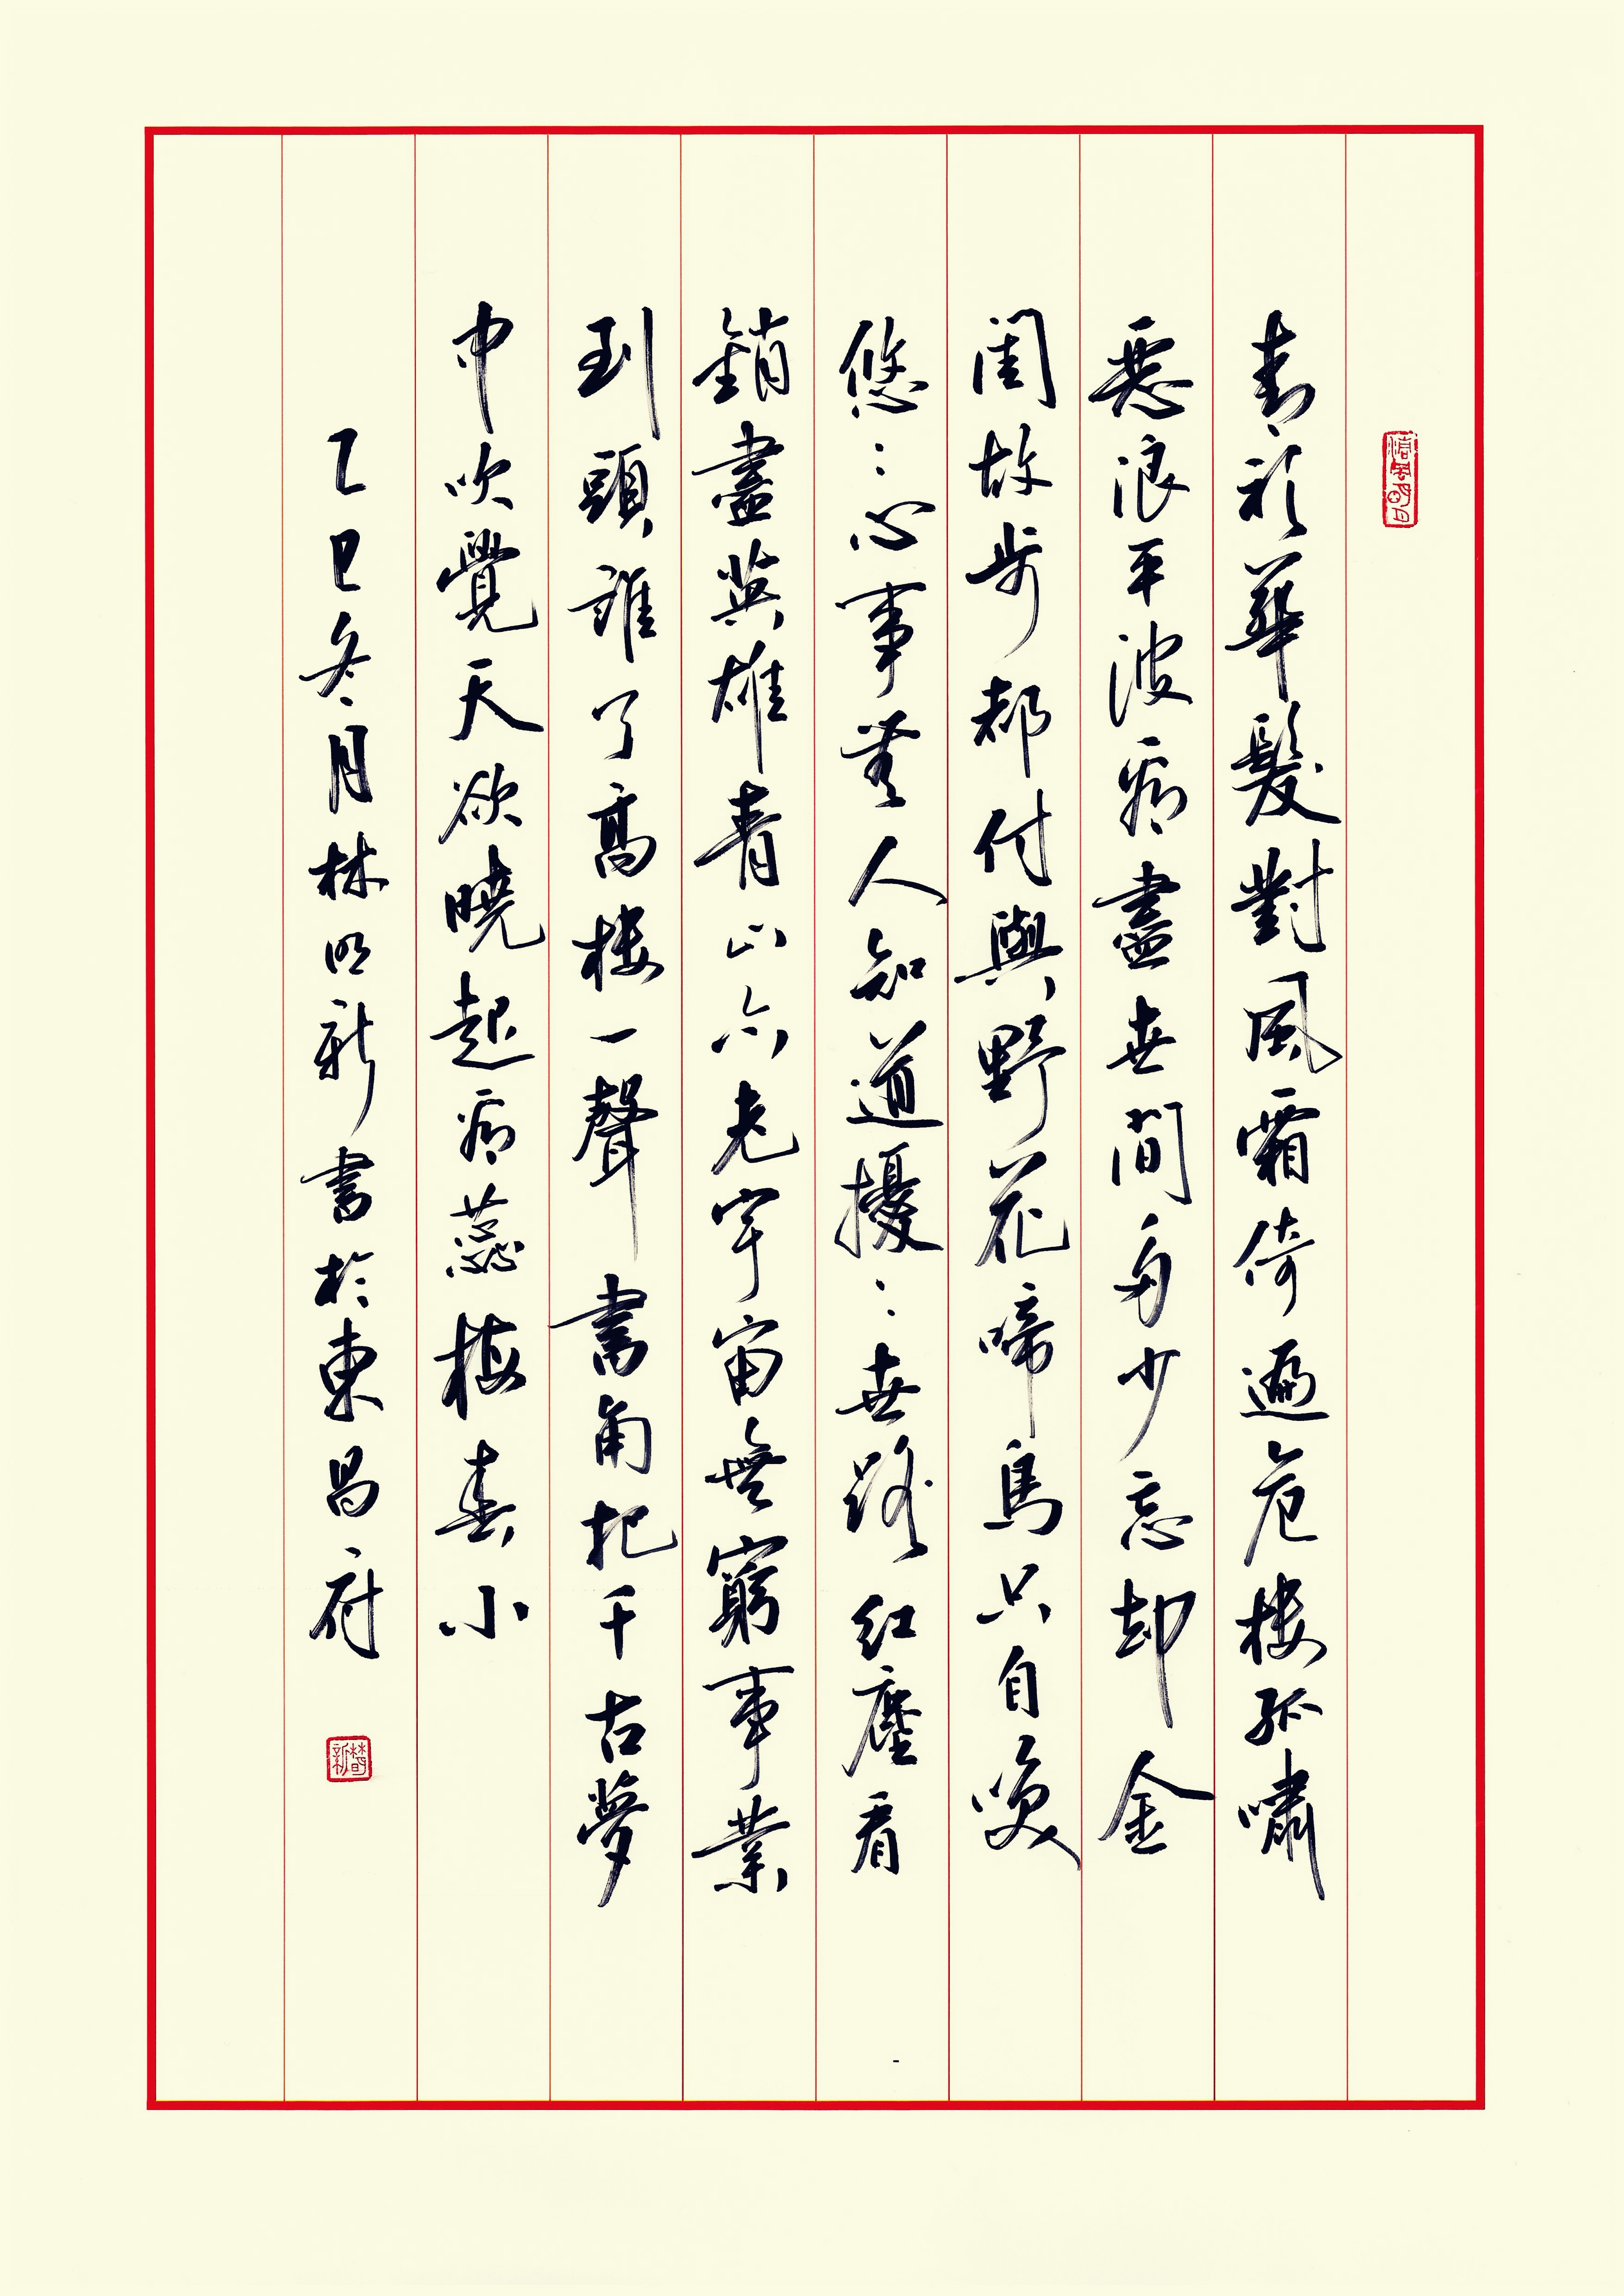 青衫華髮對風霜倚遍危樓孤嘯
惡浪平波看盡世間多少忘却金
閨故步都付與野花啼鳥只自嘆
悠々心事無人知道擾々世路紅塵看
銷盡英雄青山亦老宇宙無窮事業
到頭誰了高樓一聲畫角把千古夢
中吹覺天欲曉起看蕊梅春小
乙巳冬月林明新書於東昌府